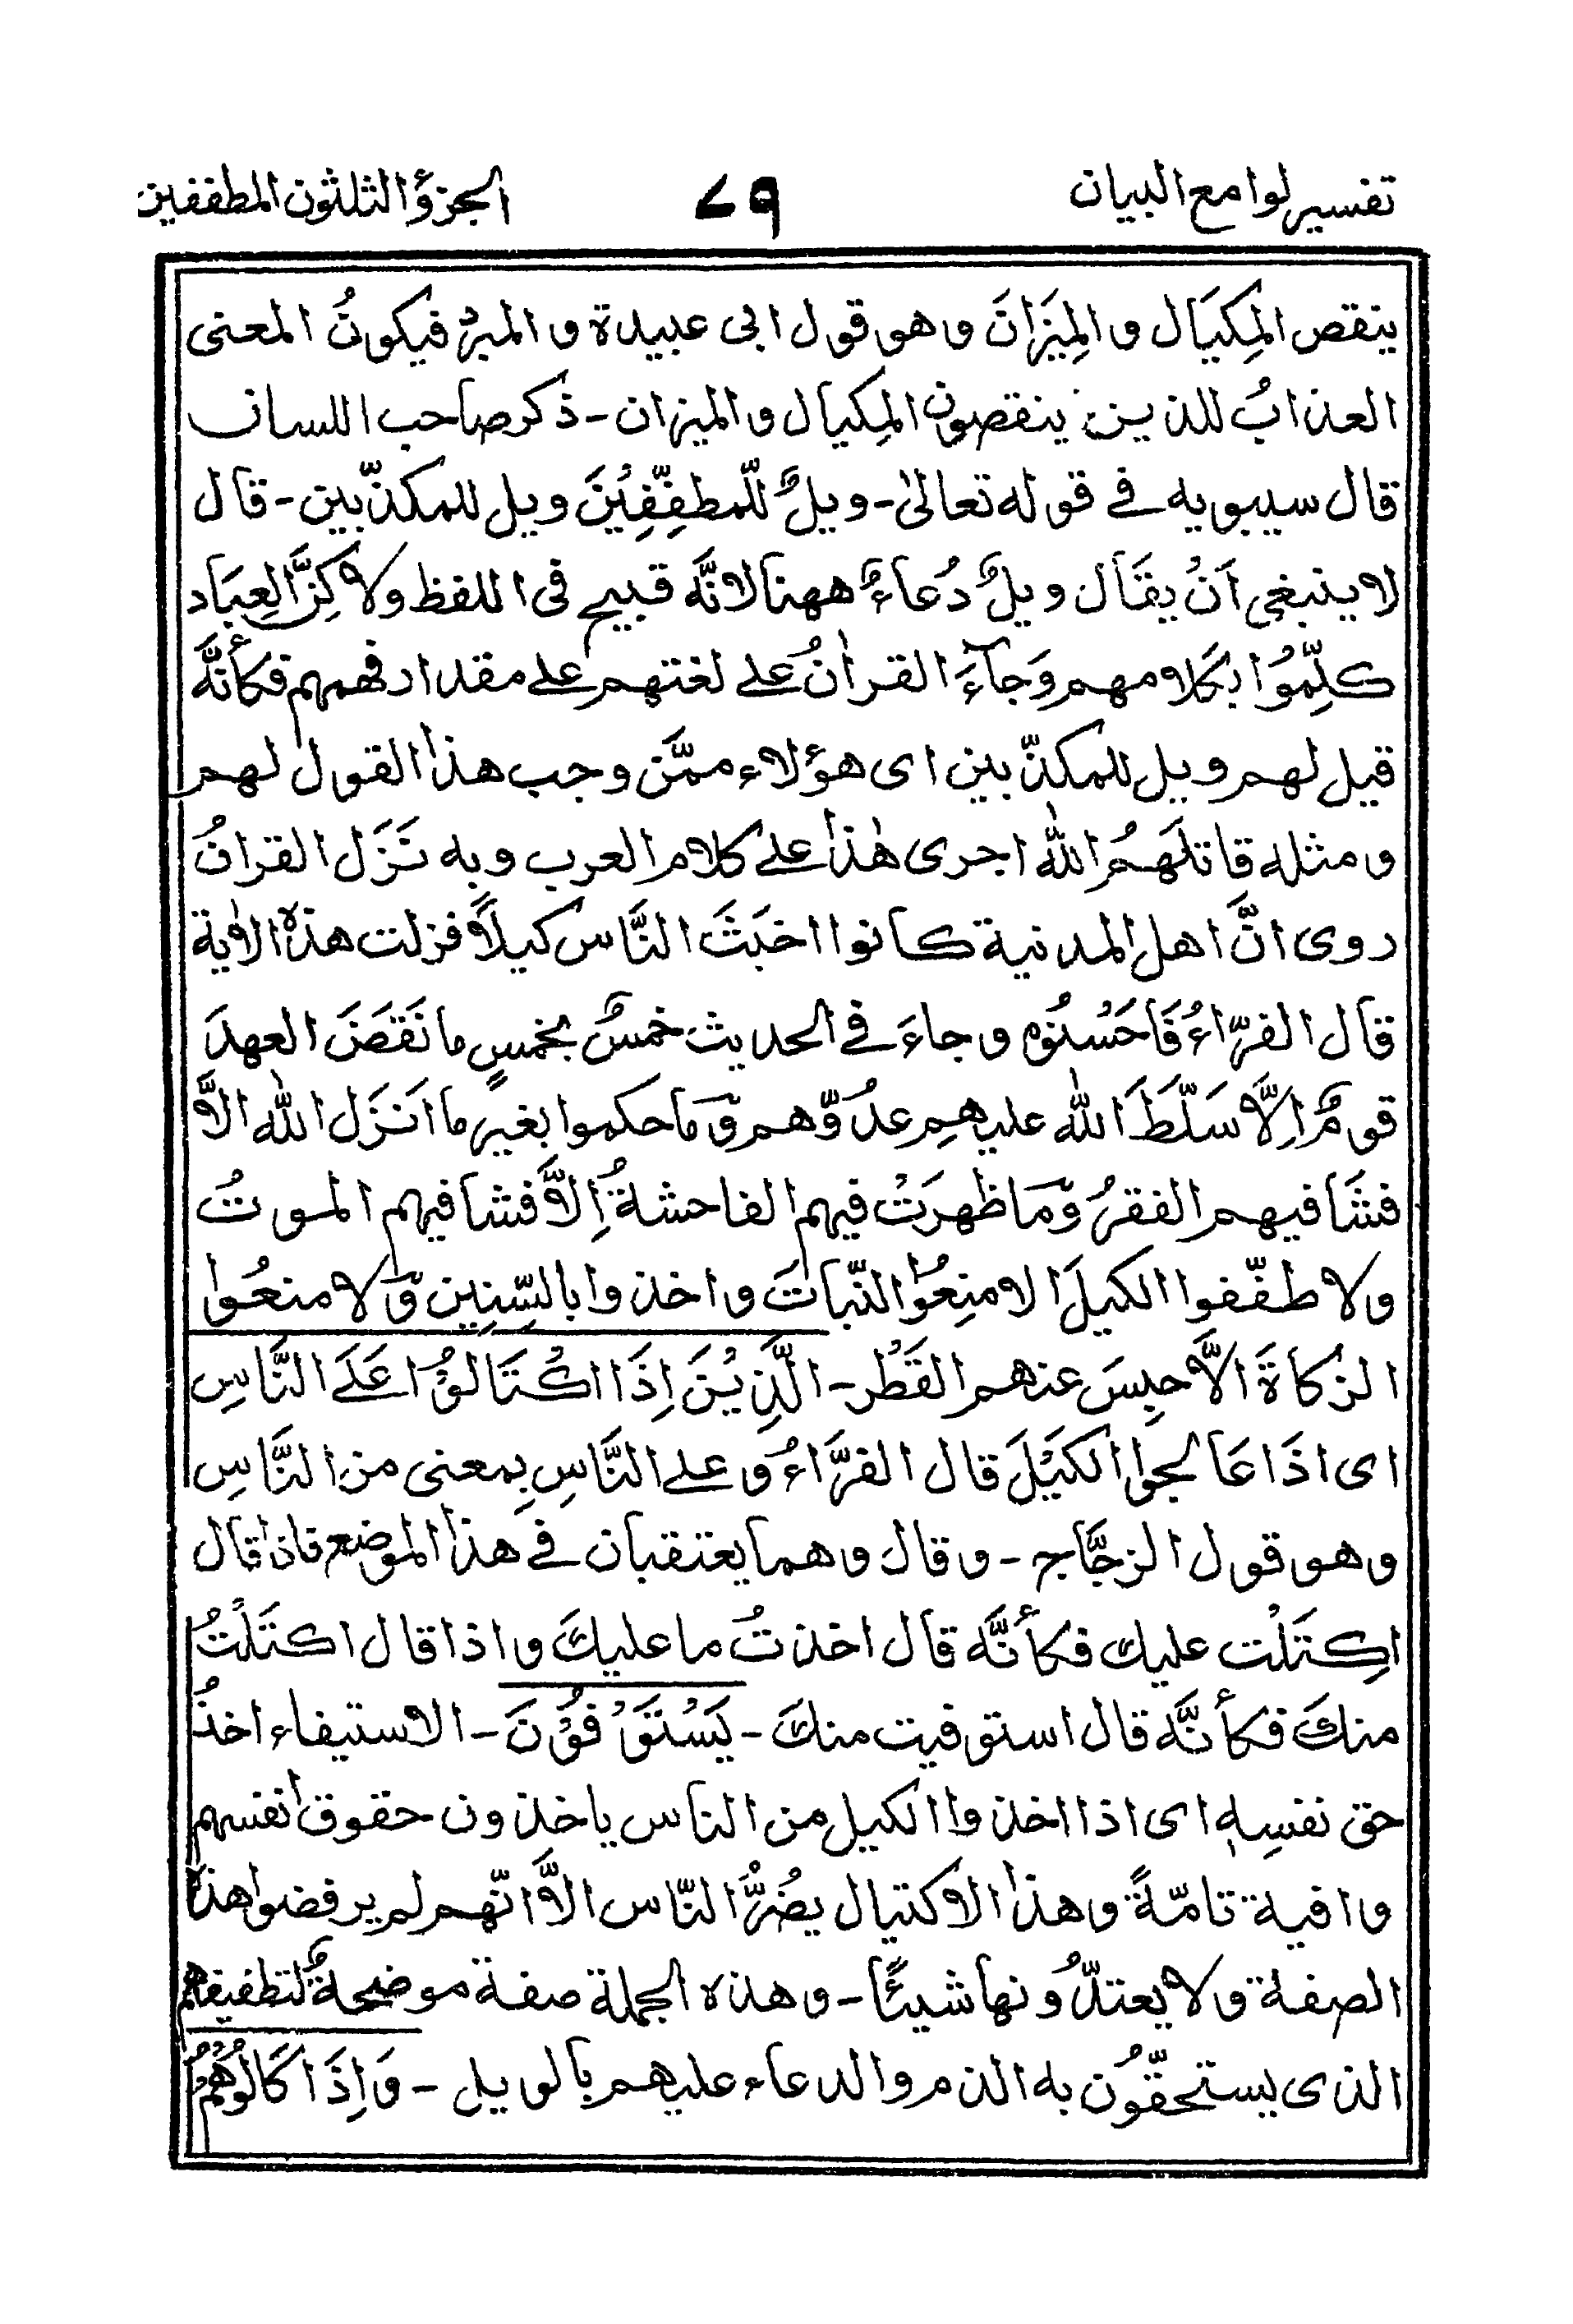 تفسير لوامع البيان ٧٩ الجزؤ الثلثون المطففين
ينقص المِكيَال و المِيزَانَ وهو قول ابى عبيدة و المبرّد فيكونُ المعنى
العذابُ للذين ينقصون المِكيال والميزان - ذكر صاحب اللسان
قال سيبويه فے قوله تعالىٰ - ويلٌ للّمطفِّفِيُنَ ويل للمكذّبين - قال
لا ينبغى اَنُ يقَال ويلٌ دُعاءٌ ههنا لانَّه قبيح فى اللفظ ولاكِنَّ العِبَاد
كلِّمُوُا بكلامهم وَجآءَ القرانُ علے لغتهم علے مقدار فهمهم فكأنَّه
قيل لهم ويل للمكذّبين اى هؤلاء ممَّن وجب هذا القول لهم
ومثله قاتلَهُم اللّٰه اجرى هٰذا علے كلام العرب وبه نَزَل القرانُ
روى انَّ اهل المدنية كانوا اخبَثَ النَّاس كيلاً فنزلت هذه الاٰية
قال الفرّاءُ فَاَحَسُنُوم وجاءَ فے الحديث خمسٌ بخمسٍ ما نَقَضَ العهدَ
قومٌ اِلاَّ سَلّطَ اللّٰه عليهِم عدُوّهم وّما حكموا بغير ما انَزَل اللّٰه الاَّ
فشَا فيهم الفقرُ وّمَا ظهرَتُ فيهم الفاحشةُ اِلاَّ فشا فيهم الموتُ
ولا طفّفوا الكيلَ الا مِنِعُوُا النّباتَ واخذوا بالسِّنِين وّلا منعُوا
الزكاةَ الاَّ حبِسَ عنهم القَطُر - الَّذِيُنَ اِذَا اكُتَالوُا عَلَے النَّاسِ
اى اذَا عَالجوا الكَيُلَ قال الفرَّاءُ و علے النَّاسِ بِمعنى من النَّاسِ
وهو قول الزجّاج - وقال وهما يعتقبان فے هذا الموضع فاذا قال
اكِتَلُت عليك فكأنَّه قال اخذتُ ما عليكَ واذا قال اكتَلُتُ
منكَ فكأنَّه قال استوفيت منكَ - يَسُتَوُفُوُنَ - الاستيفاء اخذُ
حق نفسِهٖ اى اذا اخذوا الكيل من الناس ياخذون حقوق انفسهم
وافية تامّةً وهذا الاكتيال يضُرُّ النّاس الاَّ انّهم لم يرفضوا هذا
الصفة ولا يعتدّونها شيئًا - وهذه الجملة صفة موضحةٌ لتطفيفهم
الذى يستحقّون به الذم والدعاء عليهم بالويل - وَاِذَا كَالُوُهُمُ